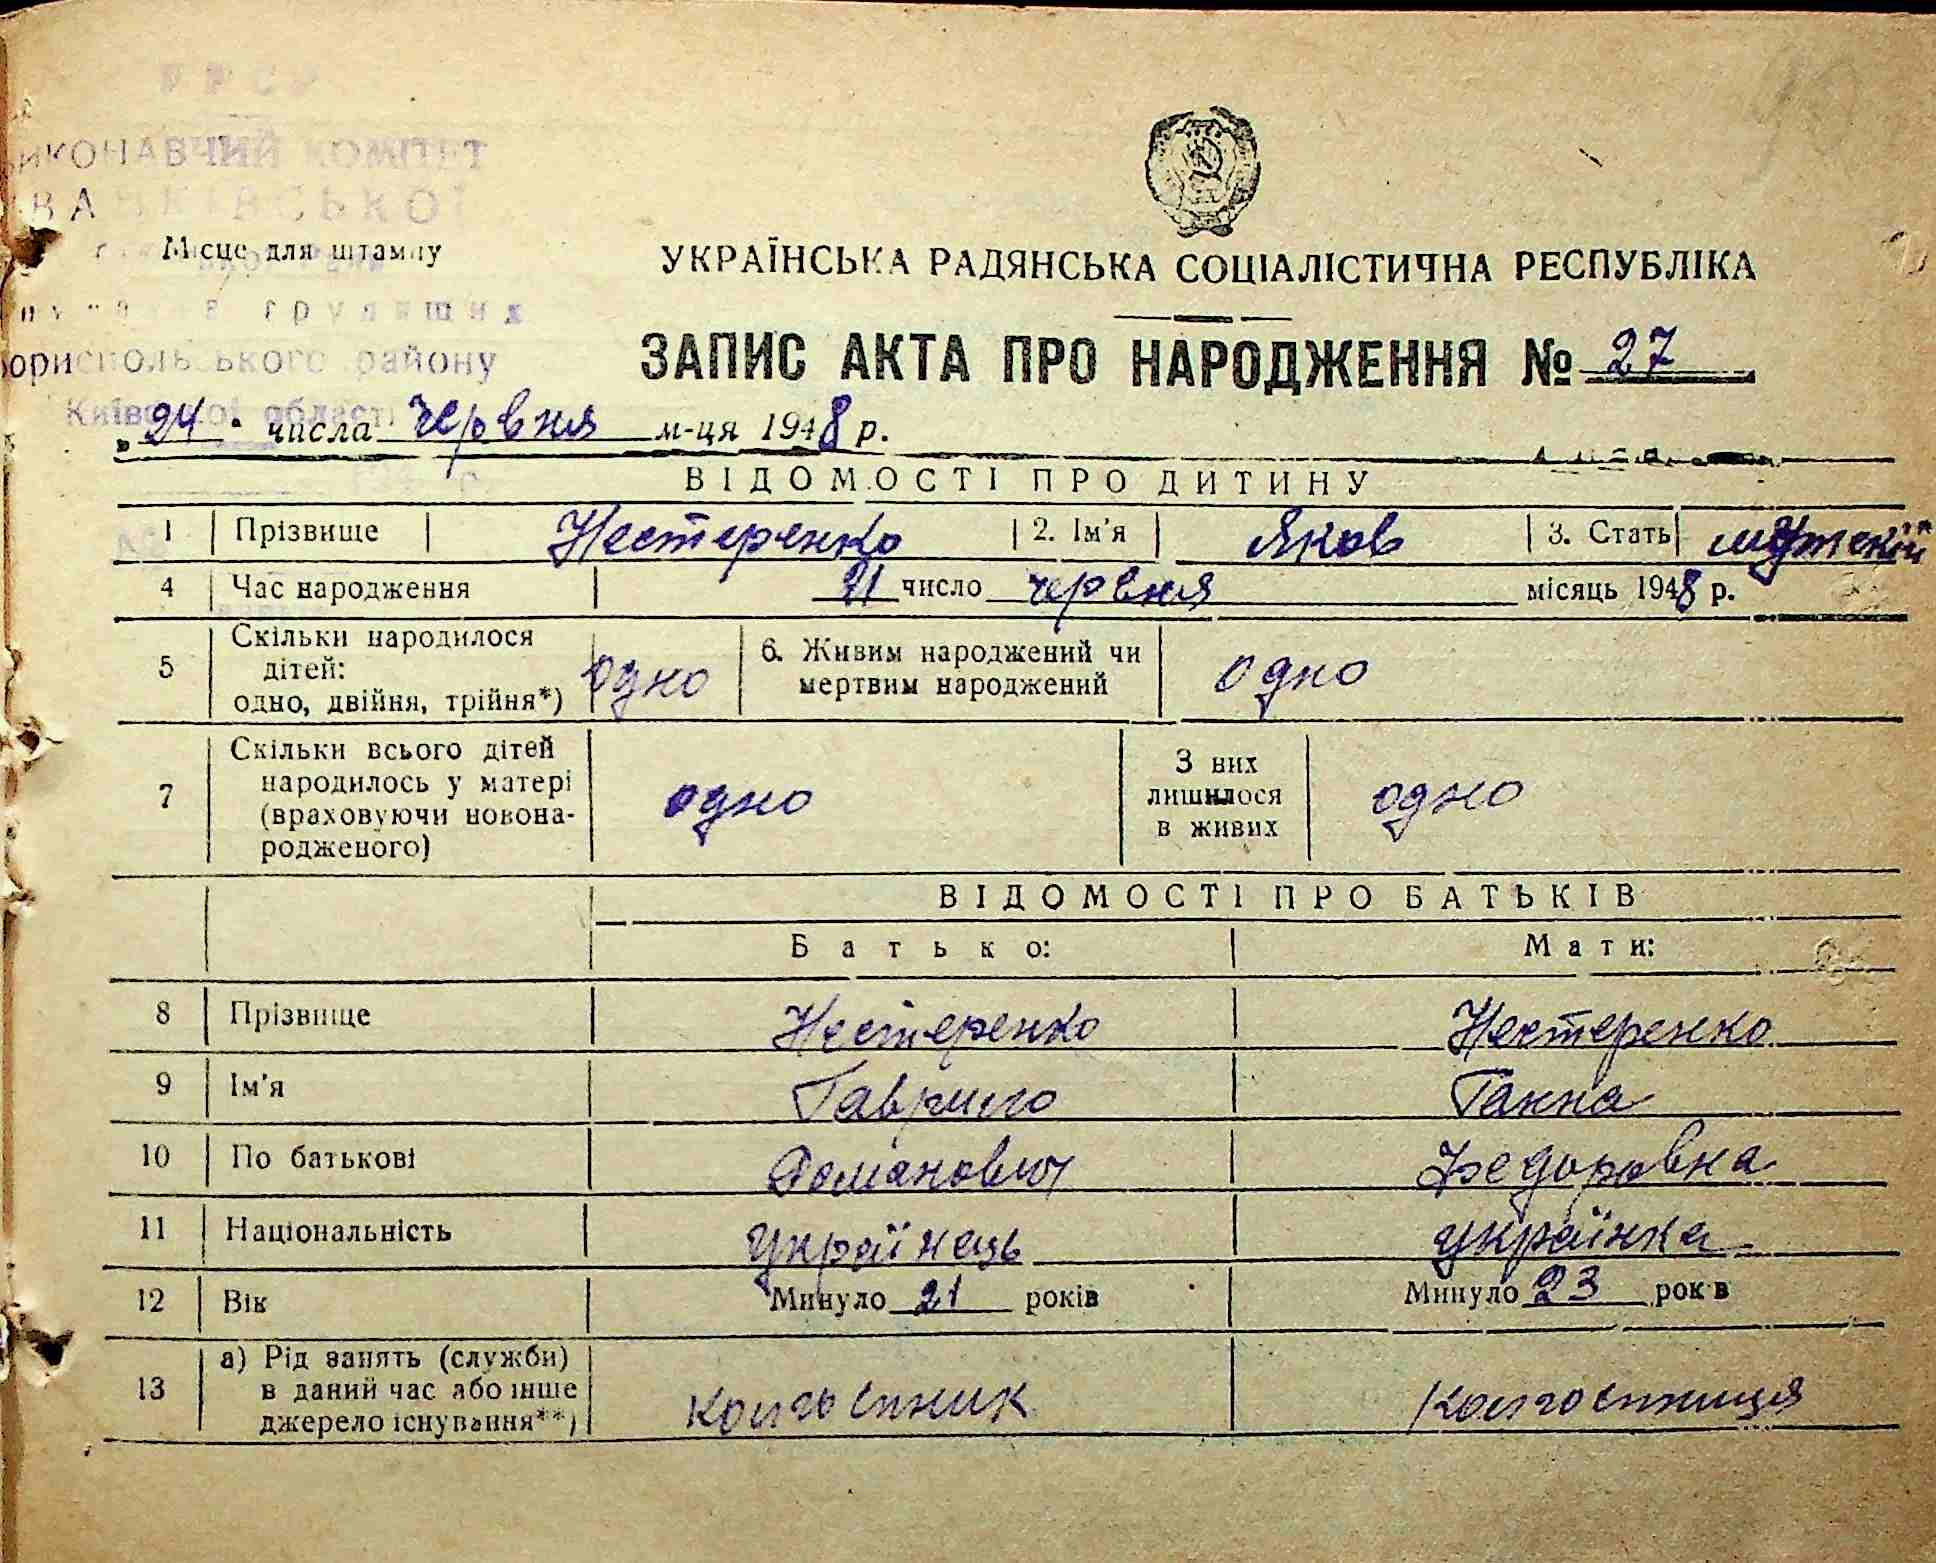 УРСР
ВИКОНАВЧИЙ КОМІТЕТ
ІВАНКІВСЬКОЇ
Місце для штампу
трудящих
Бориспольського району
Київської області
УКРАЇНСЬКА РАДЯНСЬКА СОЦІАЛІСТИЧНА РЕСПУБЛІКА
ЗАПИС АКТА ПРО НАРОДЖЕННЯ № 27
„24" числа червня м-ця 1948 р.
ВІДОМОСТІ ПРО ДИТИНУ
1 Прізвище Нестеренко 2. Ім'я Яков 3. Стать
4 Час народження 21 число червня місяць 1948 р.
5 Скільки народилося дітей: одно, двійня, трійня*) одно 6. Живим народжений чи мертвим народжений одно
7 Скільки всього дітей народилось у матері (враховуючи новонародженого) одно З них лишилося в живих одно
ВІДОМОСТІ ПРО БАТЬКІВ
Батько: Мати:
8 Прізвище Нестеренко Нестеренко
9 Ім'я Гаврило Ганна
10 По батькові Романович Федоровна
11 Національність українець українка
12 Вік Минуло 21 років Минуло 23 років
13 а) Рід занять (служби) в даний час або інше джерело існування**) колгоспник колгоспниця